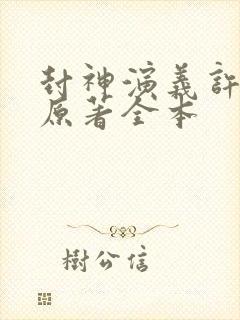 封神演義許
原著全本
樹公信